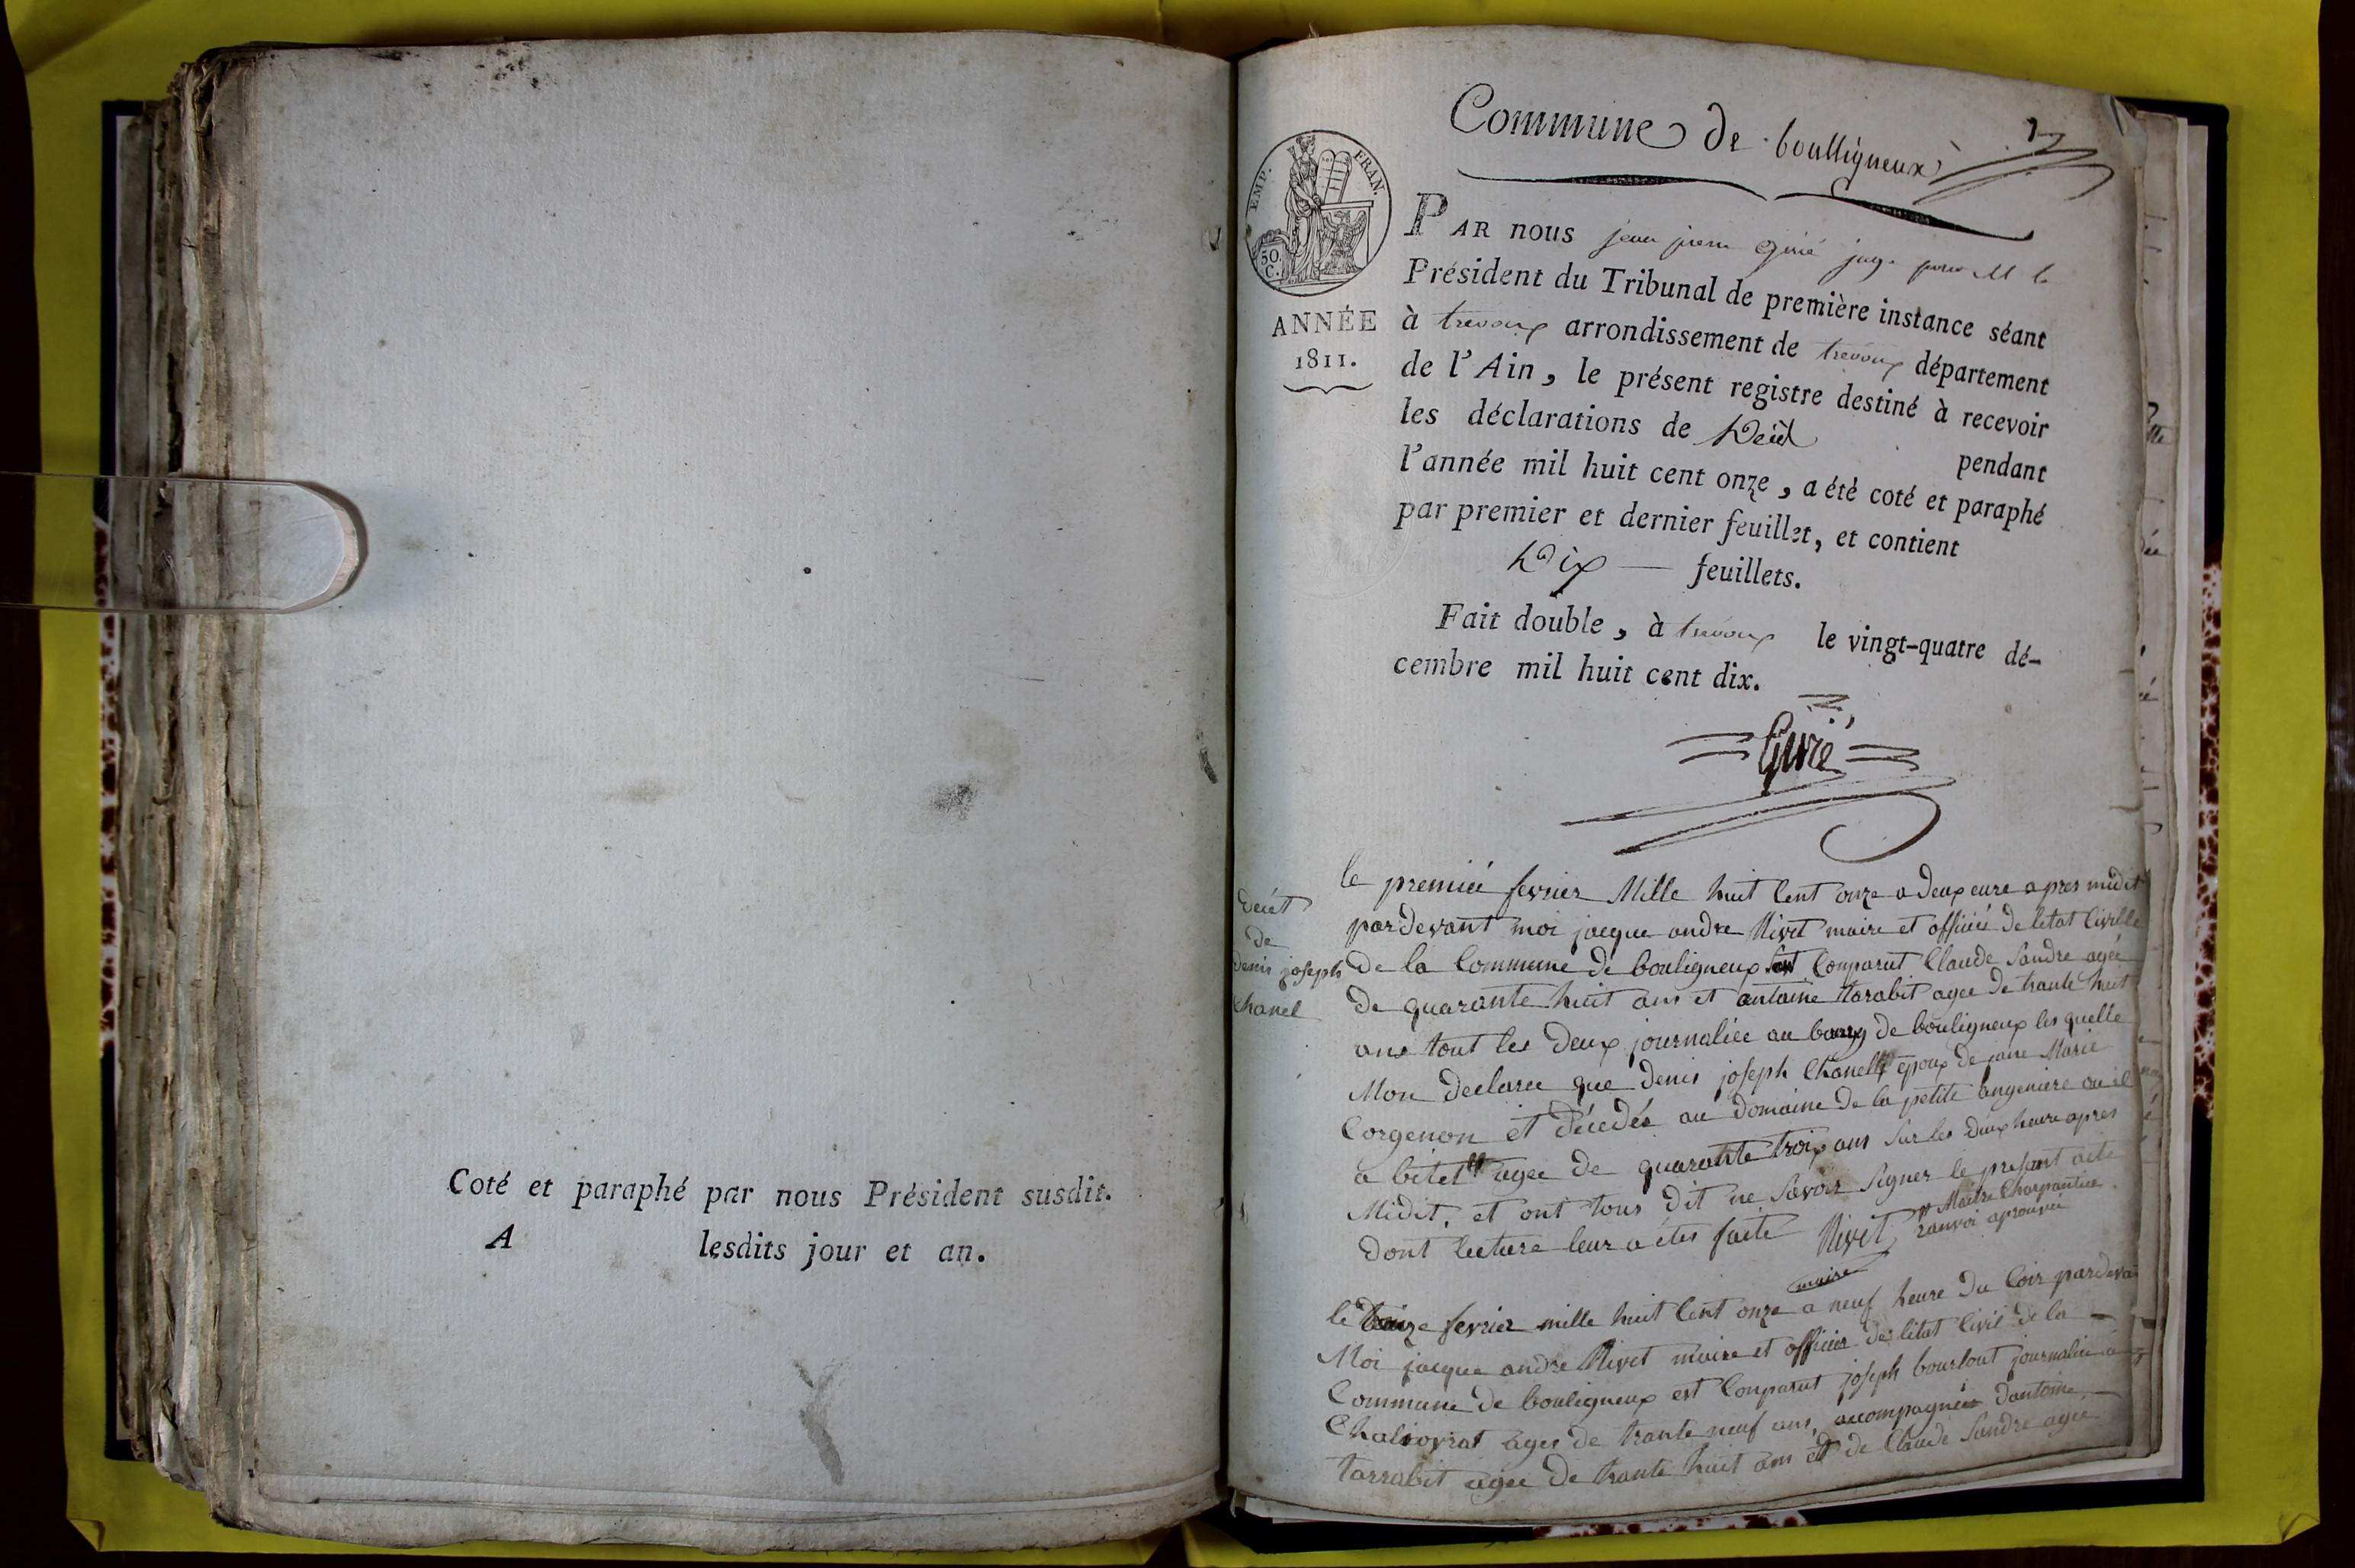 Coté et paraphé par nous Président susdit.
A lesdits jour et an.
Commune de boulligneux
EMP. FRAN.
50 C.
ANNÉE
1811.
PAR nous jean pierre Givré juge pour M le
Président du Tribunal de première instance séant
à trevoux arrondissement de trevoux département
de l'Ain, le présent registre destiné à recevoir
les déclarations de Décès pendant
l'année mil huit cent onze, a été coté et paraphé
par premier et dernier feuillet, et contient
Dix — feuillets.
Fait double, à trevoux le vingt-quatre dé-
cembre mil huit cent dix.
Givré
decét
de
denis joseph
chanel
le premiée fevrier Mille huit Cent onze a deux eure apres midit
pardevant moi jacque andre Nivet maire et officiée de letat Civille
de la Commune de bouligneux Conparut Claude Sandre agée
de quarante huit ans et antoine tarabit agee de trante huit
ans tout les deux journaliée au bourg de bouligneux les quelle
Mon declaree que denis joseph Chanel # epoux de jane Marie
Corgenon et décedés au domaine de la petite angeniere ou il
a bitet agee de quarante trois ans Sur les deux heure apres
Midit, et ont tous dit ne Savoir Signer le presant acte
dont lecture leur a étés faite Nivet
maire
# Maitre Charpantiee
ranvoi aprouvée
le treize fevrier mille huit Cent onze a neuf heure du Soir pardevan
Moi jacque andre Nivet maire et officier de létat Civil de la
Commune de bouligneux est Conparut joseph bourlout journaliée a
Chaliovrat ages de trante neuf ans, accompagnée dantoine
tarrabit agee de trante huit ans et de Claude Sandre agee